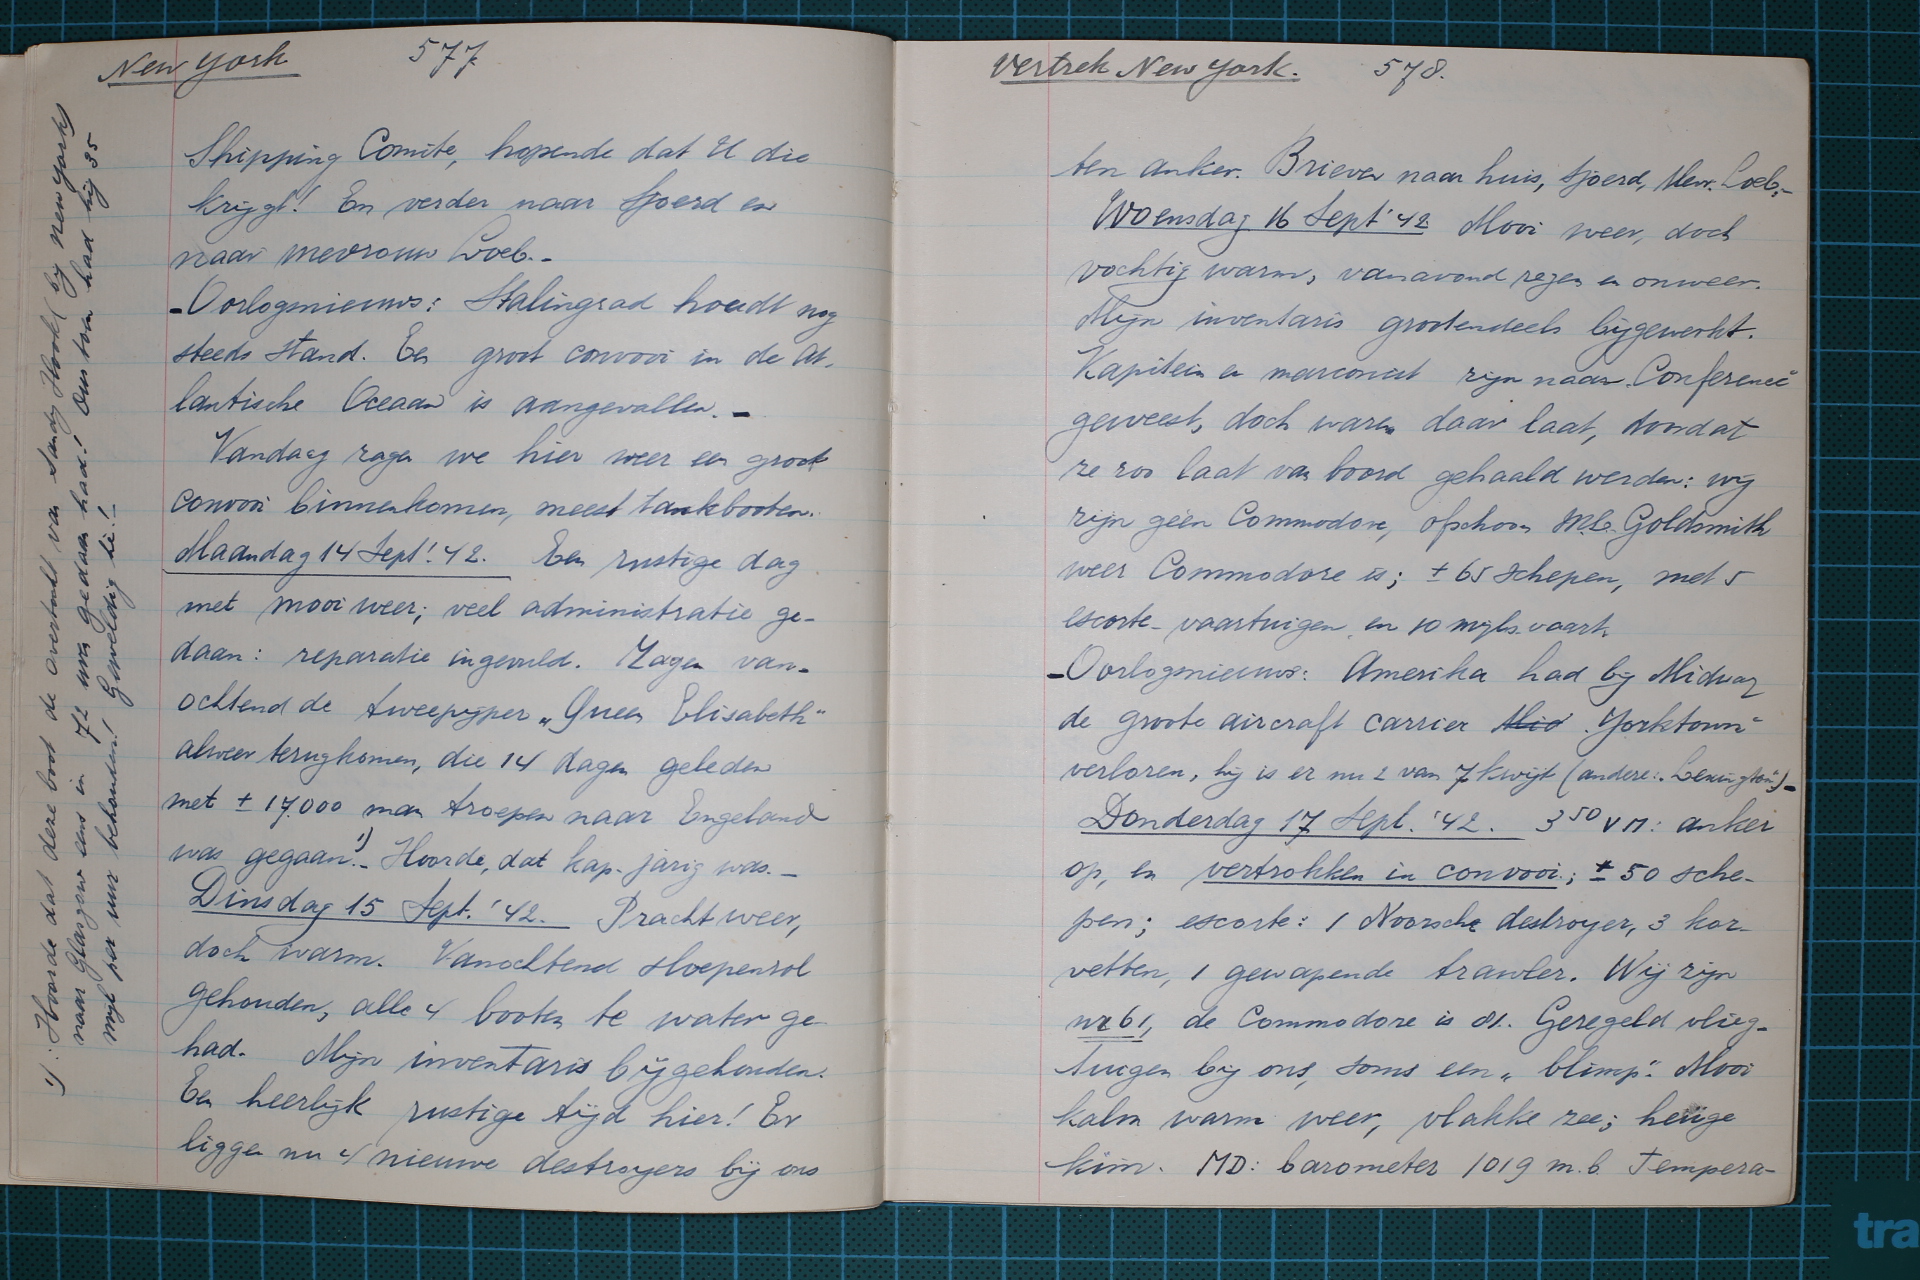 New York 577.
Shipping Comite, hopende dat U die
krijgt! En verder naar Sjoerd en
naar mevrouw Loeb.-
-Oorlogsnieuws: Stalingrad houdt nog
steeds stand. Een groot convooi in de At-
lantische Oceaan is aangevallen.-
Vandaag zagen we hier weer een groot
convooi binnenkomen, meest tankbooten.
Maandag 14 Sept! 42. Een rustige dag
met mooi weer; veel administratie ge-
daan: reparatie ingevuld. Zagen van-
ochtend de tweepijper "Queen Elisabeth"
alweer terugkomen, die 14 dagen geleden
met ± 17.000 man troepen naar Engeland
was gegaan.1)- Hoorde, dat kap. jarig was.-
Dinsdag 15 Sept. '42. Prachtweer,
doch warm. Vanochtend sloepenrol
gehouden, alle 4 booten te water ge-
had. Mijn inventaris bijgehouden.
Een heerlijk rustige tijd hier! Er
liggen nu 4 nieuwe destroyers bij ons
1): Hoorde dat deze boot de overtocht van Sandy Hook (bij New York)
naar Glasgow eens in 72 uur gedaan had! Ons toen had hij 35
mijl per uur behouden! Geweldig hè!-
Vertrek New York. 578.
ten anker. Brieven naar huis, Sjoerd, Mevr. Loeb.-
Woensdag 16 Sept '42 Mooi weer, doch
vochtig warm, vanavond regen en onweer.
Mijn inventaris grootendeels bijgewerkt.
Kapitein en marconist zijn naar Conferencè
geweest, doch waren daar laat, doordat
ze zoo laat van boord gehaald werden: wij
zijn géén Commodore, ofschoon Goldsmith
weer Commodore is; ± 65 schepen, met 5
escorte-vaartuigen en 10 mijls vaart.
-Oorlogsnieuws: Amerika had bij Midway
de groote aircraft carrier Mid "Yorktown"
verloren, hij is er nu 2 van 7 kwijt (andere: "Lexington")-
Donderdag 17 Sept. '42. 3⁵⁰ VM: anker
op, en vertrokken in convooi; ± 50 sche-
pen; escorte: 1 Noorsche destroyer, 3 kor-
vetten, 1 gewapende trawler. Wij zijn
nr 61, de Commodore is 81. Geregeld vlieg-
tuigen bij ons, soms een "blimp". Mooi
kalm warm weer, vlakke zee; heiige
kim. MD: barometer 1019 m.b. Tempera-
tra